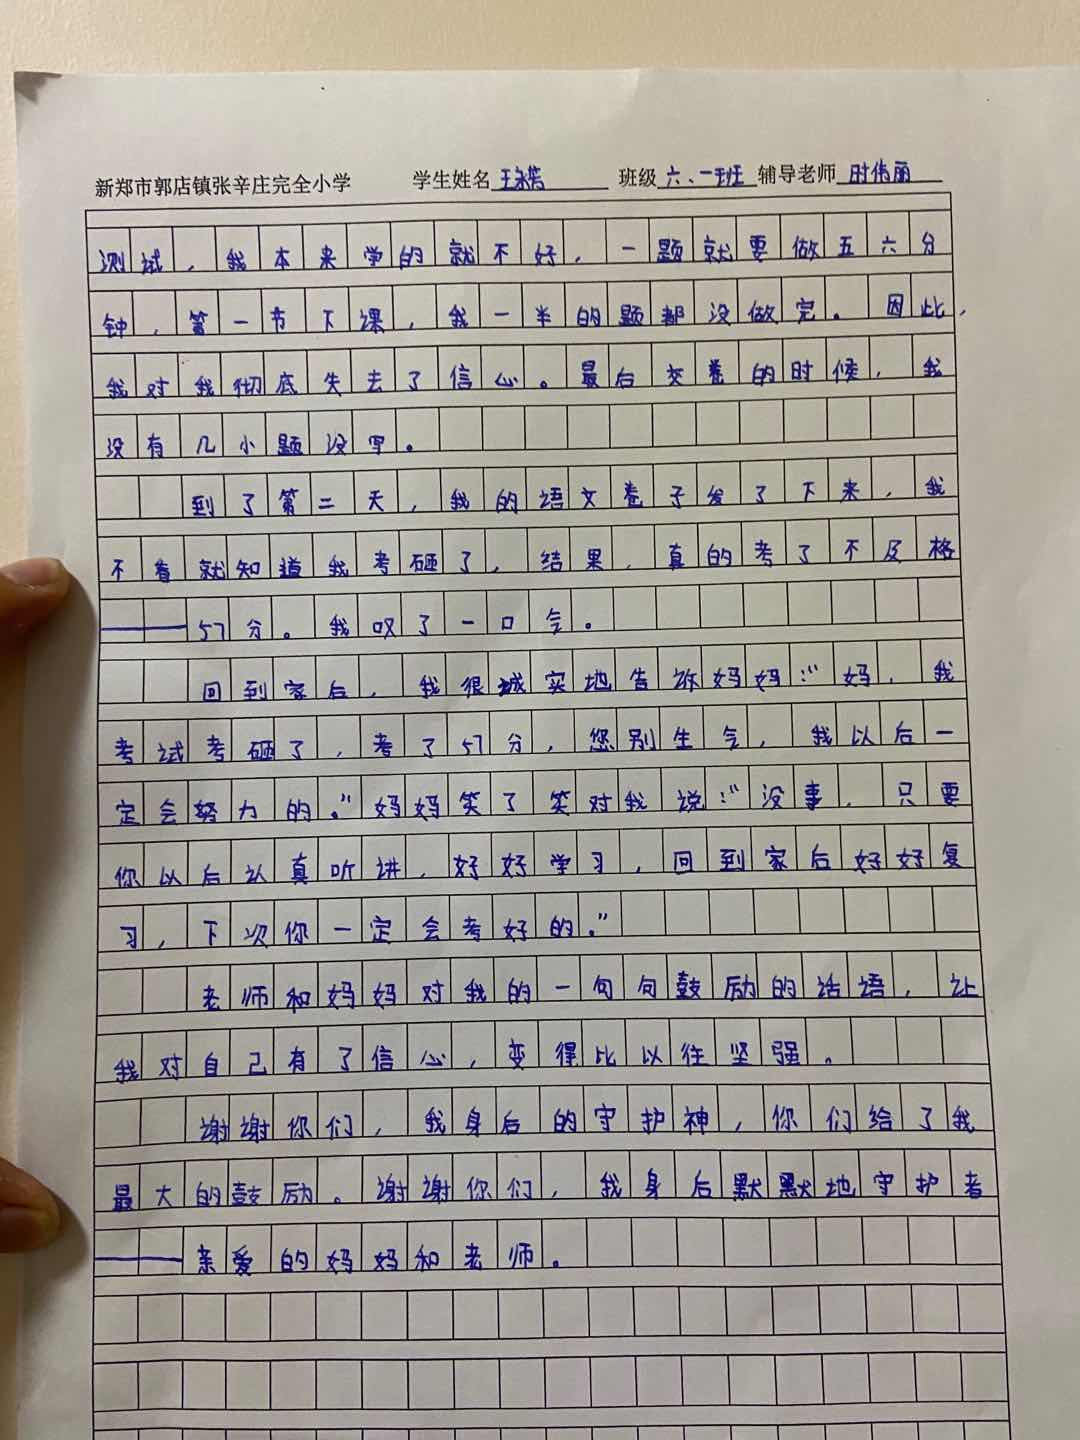 新郑市郭店镇张辛庄完全小学 学生姓名 王 班级 六、一班 辅导老师 时伟丽
测试，我本来学的就不好，一题就要做五六分
钟，第一节下课，我一半的题都没做完。因此，
我对我彻底失去了信心。最后交卷的时候，我
没有几小题没写。
到了第二天，我的语文卷子发了下来，我
不看就知道我考砸了，结果，真的考了不及格
——57分。我叹了一口气。
回到家后，我很城实地告诉妈妈：“妈，我
考试考砸了，考了57分，您别生气，我以后一
定会努力的。”妈妈笑了笑对我说：“没事，只要
你以后认真听讲，好好学习，回到家后好好复
习，下次你一定会考好的。”
老师和妈妈对我的一句句鼓励的话语，让
我对自己有了信心，变得比以往坚强。
谢谢你们，我身后的守护神，你们给了我
最大的鼓励。谢谢你们，我身后默默地守护者
——亲爱的妈妈和老师。